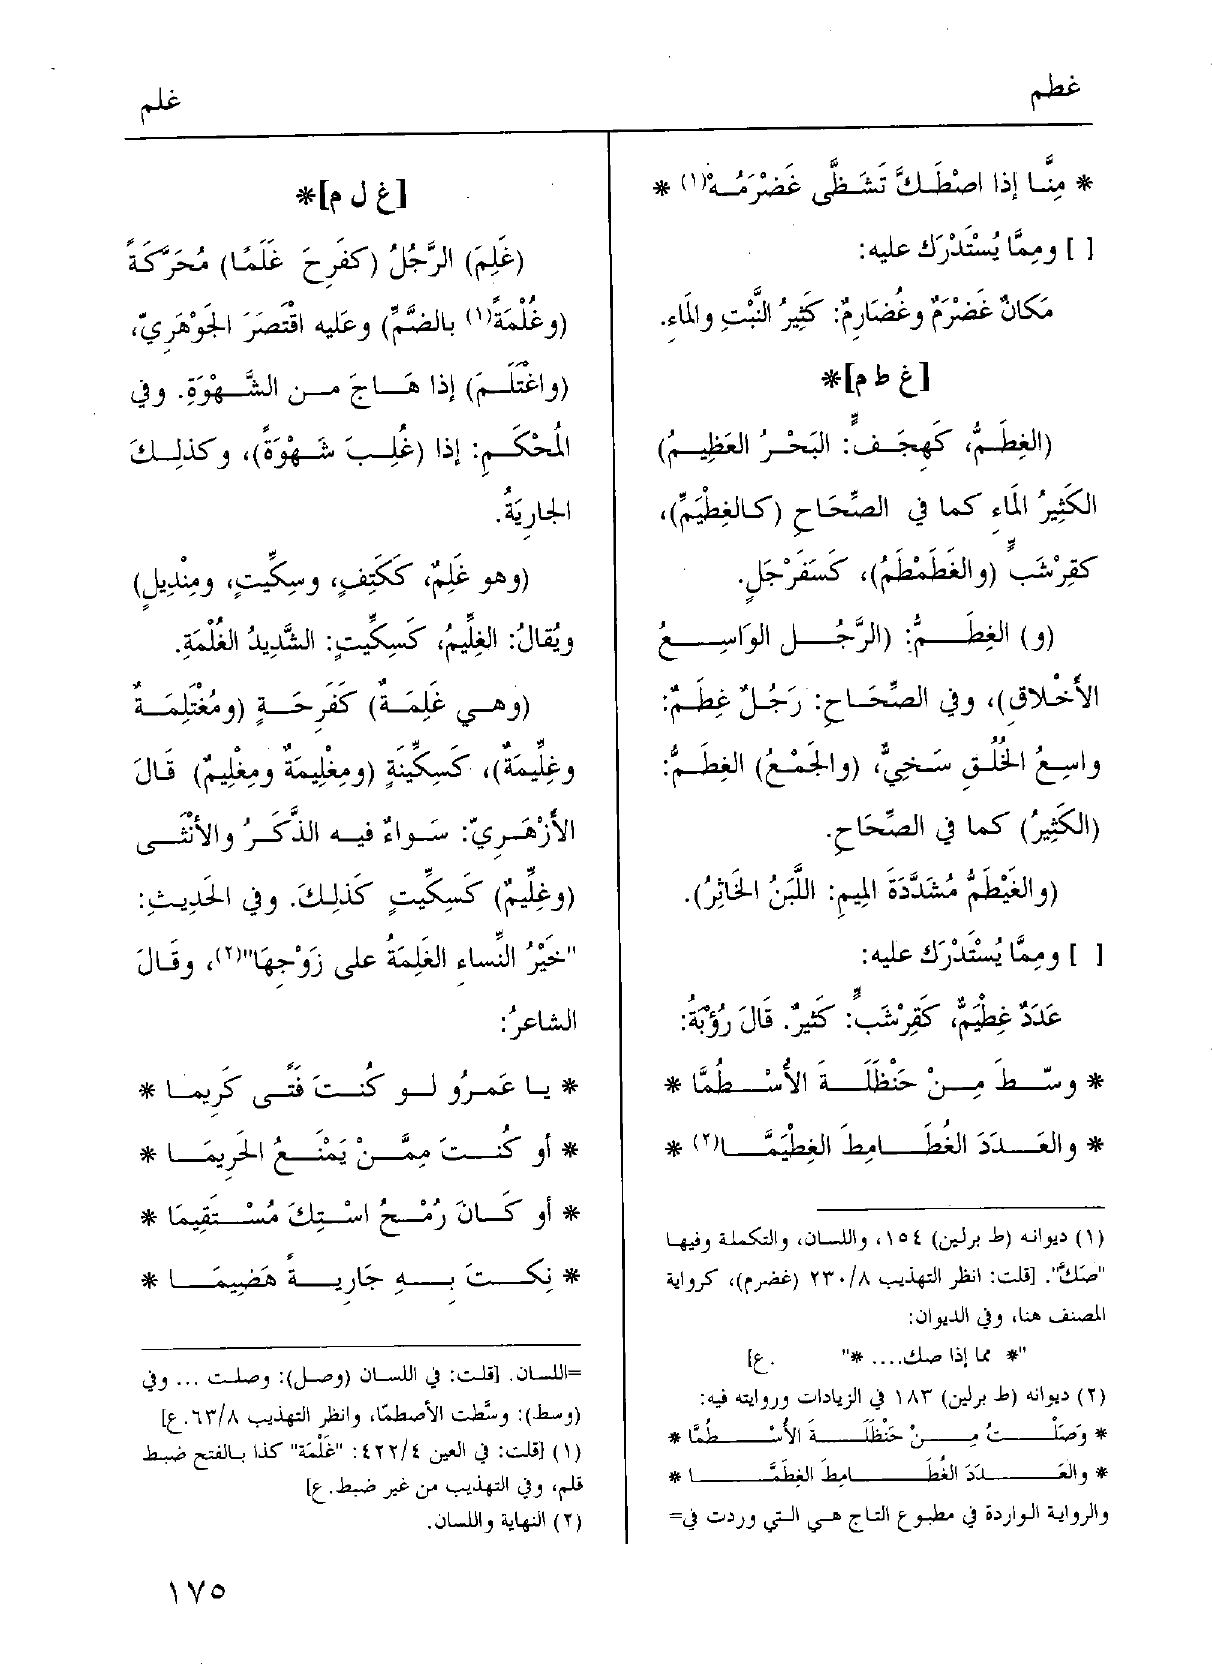 غطم
غلم
* مِنَّا إذا اصْطَكَّ تَشَظَّى غَضْرَمُهْ(١) *
[ ] ومِمَّا يُسْتَدْرَك عليه:
مَكَانٌ غَضْرَمٌ وغُضَارِمٌ: كَثِيرُ النَّبْتِ والمَاءِ.
[غ ط م]*
(الغِطَمُّ، كَهِجَفٍّ: البَحْرُ العَظِيمُ)
الكَثِيرُ المَاءِ كما في الصِّحَاحِ (كالغِطْيَمِّ)،
كقِرْشَبٍّ (والغَطَمْطَمُ)، كَسَفَرْجَلٍ.
(و) الغِطَمُّ: (الرَّجُل الوَاسِعُ
الأَخْلاقِ)، وفي الصِّحَاحِ: رَجُلٌ غِطَمٌّ:
واسِعُ الخُلُقِ سَخِيٌّ، (والجَمْعُ) الغِطَمُّ:
(الكَثِيرُ) كما في الصِّحَاحِ.
(والغَيْطَمُّ مُشَدَّدَةَ المِيمِ: اللَّبَنُ الخَاثِرُ).
[ ] ومِمَّا يُسْتَدْرَك عليه:
عَدَدٌ غِطْيَمٌّ، كَقِرْشَبٍّ: كَثِيرٌ. قَالَ رُؤْبَةُ:
* وسّط مِنْ حَنْظَلَةَ الأُسْطُمَّا *
* والعَدَدَ الغُطَامِطَ الغِطْيَمَّا(٢) *
(١) ديوانه (ط برلين) ١٥٤، واللسان، والتكملة وفيها
"صَكَّ". [قلت: انظر التهذيب ٢٣٠/٨ (غضرم)، كرواية
المصنف هنا، وفي الديوان:
"* مما إذا صك.... *" .ع]
(٢) ديوانه (ط برلين) ١٨٣ في الزيادات وروايته فيه:
* وَصَلْتُ مِنْ حَنْظَلَةَ الأُسْطُمَّا *
* والعَدَدَ الغُطَامِطَ الغِطَمَّا *
والرواية الواردة في مطبوع التاج هي التي وردت في=
[غ ل م]*
(غَلِمَ) الرَّجُلُ (كفَرِحَ غَلَمًا) مُحَرَّكَةً
(وغُلْمَةً(١) بالضَّمِّ) وعليه اقْتَصَرَ الجَوْهَرِيّ،
(واغْتَلَمَ) إذا هَاجَ من الشَّهْوَةِ. وفي
المُحْكَمِ: إذا (غُلِبَ شَهْوَةً)، وكذلِكَ
الجارِيَةُ.
(وهو غَلِمٌ، كَكَتِفٍ، وسِكِّيتٍ، ومِنْدِيلٍ)
ويُقالُ: الغِلِّيمُ، كَسِكِّيتٍ: الشَّدِيدُ الغُلْمَةِ.
(وهي غَلِمَةٌ) كَفَرِحَةٍ (ومُغْتَلِمَةٌ
وغِلِّيمَةٌ)، كَسِكِّينَةٍ (ومِغْلِيمَةٌ ومِغْلِيمٌ) قَالَ
الأَزْهَرِيّ: سَواءٌ فيه الذَّكَرُ والأُنْثَى
(وغِلِّيمٌ) كَسِكِّيتٍ كَذلِكَ. وفي الحَدِيثِ:
"خَيْرُ النِّساءِ الغَلِمَةُ على زَوْجِهَا"(٢)، وقَالَ
الشاعرُ:
* يا عَمرُو لو كُنتَ فَتًى كَرِيما *
* أو كُنتَ مِمَّنْ يَمْنَعُ الحَرِيمَا *
* أو كَانَ رُمْحُ اسْتِكَ مُسْتَقِيمَا *
* نِكتَ بِهِ جَارِيةً هَضِيمَا *
=اللسان. [قلت: في اللسان (وصل): وصلت ... وفي
(وسط): وسَّطت الأصطمّا، وانظر التهذيب ٦٣/٨.ع]
(١) [قلت: في العين ٤٢٢/٤: "غَلْمَة" كذا بالفتح ضبط
قلم، وفي التهذيب من غير ضبط.ع]
(٢) النهاية واللسان.
١٧٥